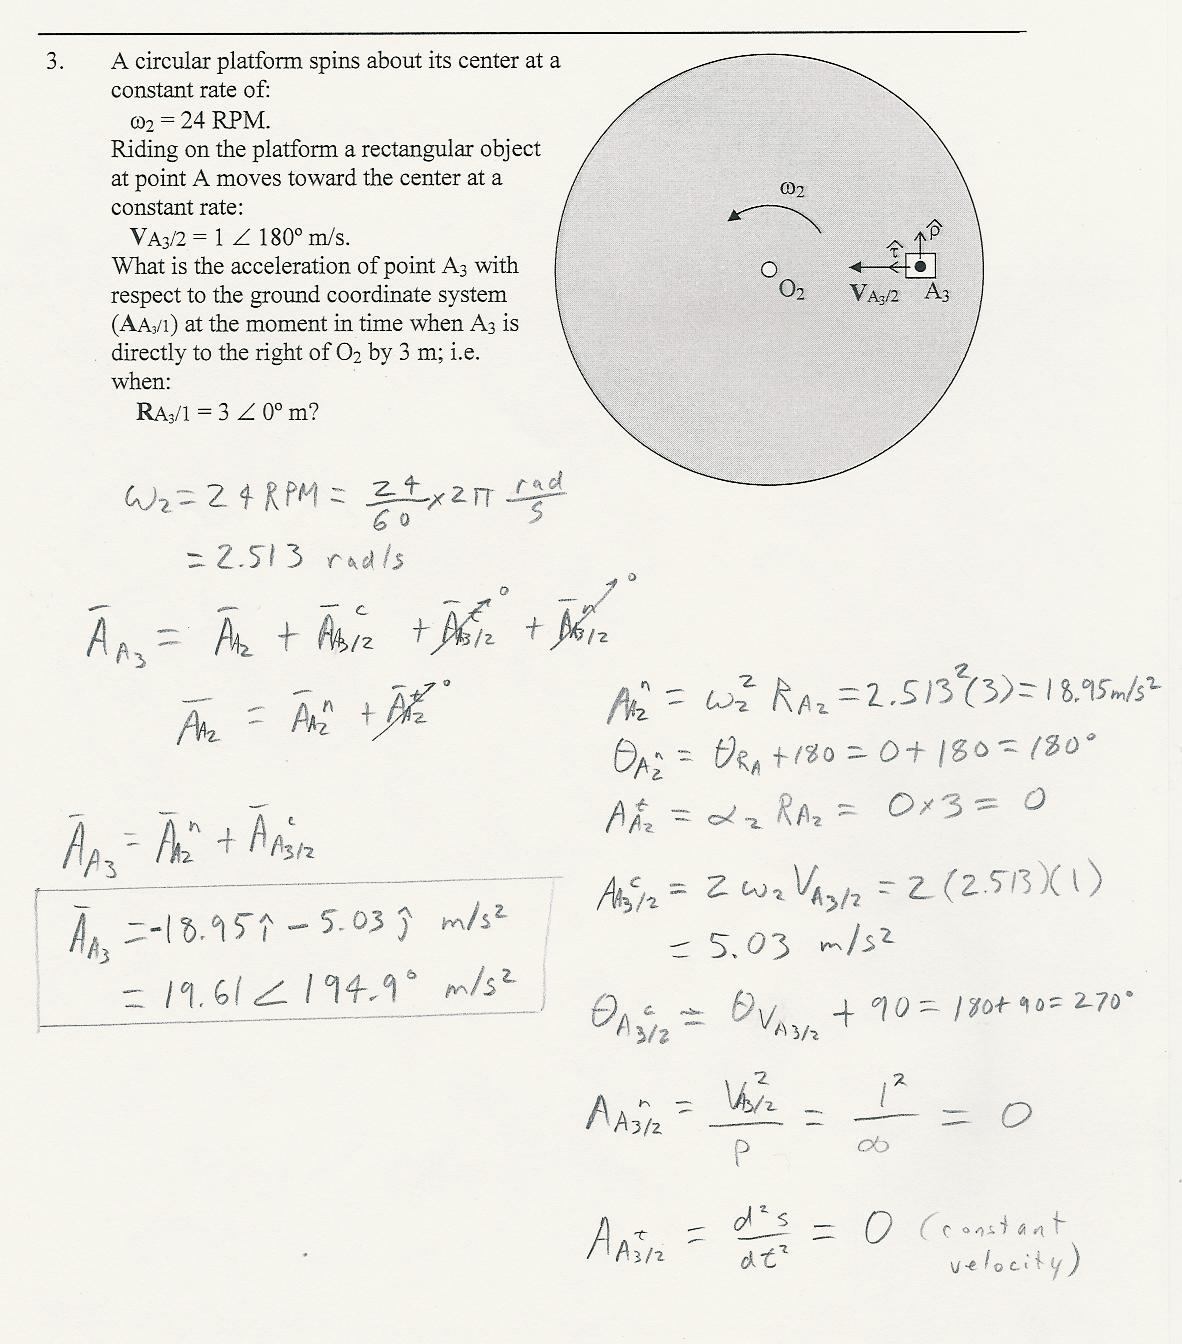 3. A circular platform spins about its center at a
constant rate of:
ω2 = 24 RPM.
Riding on the platform a rectangular object
at point A moves toward the center at a
constant rate:
VA3/2 = 1 ∠ 180° m/s.
What is the acceleration of point A3 with
respect to the ground coordinate system
(AA3/1) at the moment in time when A3 is
directly to the right of O2 by 3 m; i.e.
when:
RA3/1 = 3 ∠ 0° m?
ω2
ρ̂
τ̂
O2
VA3/2 A3
ω2 = 24 RPM = 24/60 × 2π rad/s
= 2.513 rad/s
ĀA3 = ĀA2 + ĀA3/2^c + ĀA3/2^t→0 + ĀA3/2^n→0
ĀA2 = ĀA2^n + ĀA2^t→0
ĀA3 = ĀA2^n + ĀA3/2^c
ĀA3 = -18.95 î − 5.03 ĵ m/s²
= 19.61 ∠ 194.9° m/s²
AA2^n = ω2² RA2 = 2.513²(3) = 18.95 m/s²
θAA2^n = θRA + 180 = 0 + 180 = 180°
AA2^t = α2 RA2 = 0 × 3 = 0
AA3/2^c = 2 ω2 VA3/2 = 2 (2.513)(1)
= 5.03 m/s²
θAA3/2^c = θVA3/2 + 90 = 180 + 90 = 270°
AA3/2^n = VA3/2²/ρ = 1²/∞ = 0
AA3/2^τ = d²s/dt² = 0 (constant
velocity)